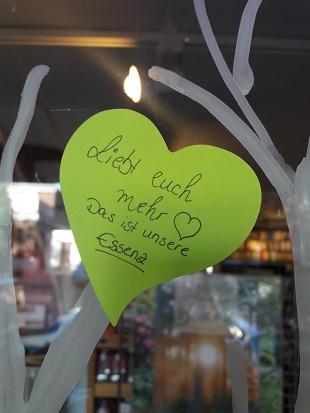 Liebt euch
mehr ♡
Das ist unsere
Essenz